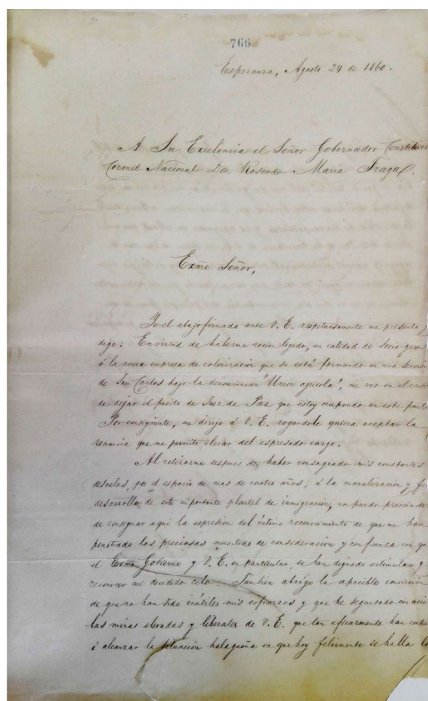 766
Esperanza, Agosto 24 de 1860.
A Su Excelencia el Señor Gobernador Constitucio
Coronel Nacional Don Rosendo Maria Fraga.
Exmo Señor,
Yo el abajo firmado ante V. E. respetuosamente me presento y
digo: En virtud de haberme sido ligado, en calidad de Socio-gerente
á la nueva empresa de colonización que se está formando en una Seccion
de San Carlos bajo la denominacion "Union agricola", me veo en el caso
de dejar el puesto de Juez de Paz que estoy ocupando en este pueblo
Por consiguiente, me dirijo á V. E. rogandole quiera aceptar la
renuncia que me permito elevar del espresado cargo.
Al retirarme despues de haber consagrado mis constantes
desvelos, por el espacio de mas de cuatro años, á la moralizacion y
desarrollo de este importante plantel de inmigracion, no puedo prescindir
de consignar aqui la espresion del íntimo reconocimiento de que me han
penetrado las preciosas muestras de consideracion y confianza con que
el Exmo Gobierno y V. E. en particular, se han dignado estimular y
reconocer mi decidido celo. Tambien abrigo la apacible conviccion
de que no han sido inútiles mis esfuerzos y que he segundado en
las miras elevadas y liberales de V. E. que tan eficazmente han
á alcanzar la situacion halagueña en que hoy felizmente se halla